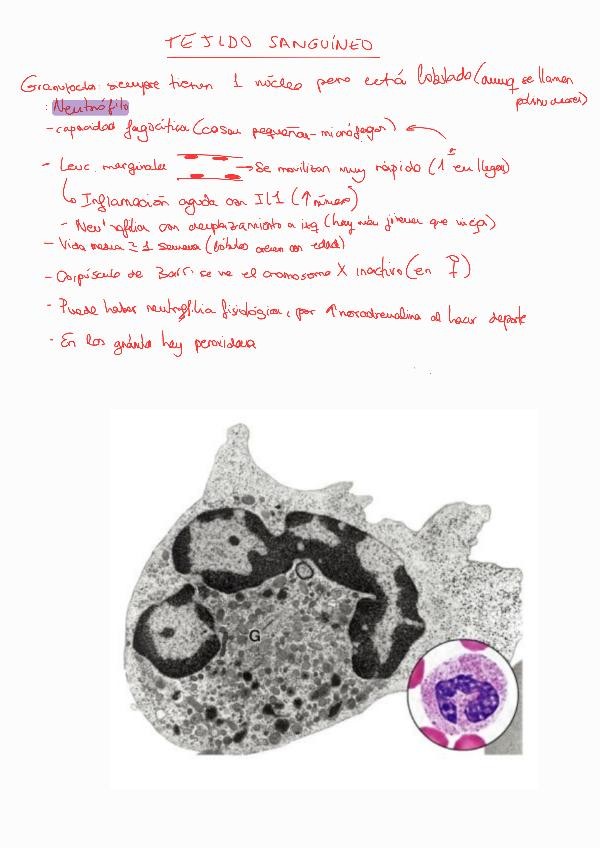 TEJIDO SANGUÍNEO
Granulocitos: siempre tienen 1 núcleo pero está lobulado (aunq se llamen
polinucleares)
: Neutrófilo
- capacidad fagocítica (cosas pequeñas - micrófagos)
- Leuc. marginales → Se movilizan muy rápido (1º en llegar)
↳ Inflamación aguda con IL1 (↑ número)
- Neutrofilia con desplazamiento a izq (hay más jóvenes que viejos)
- Vida media ≃ 1 semana (lóbulos crecen con edad)
- Corpúsculo de Barr: se ve el cromosoma X inactivo (en ♀)
- Puede haber neutrofilia fisiológica, por ↑ noradrenalina al hacer deporte
- En los gránulos hay peroxidasa
G